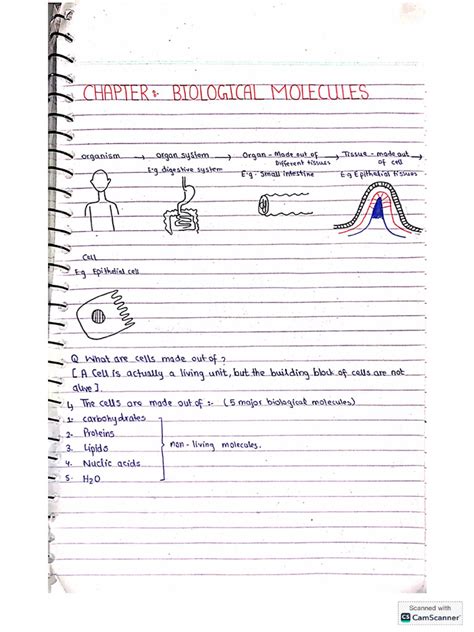 CHAPTER:- BIOLOGICAL MOLECULES
organism → organ system → Organ - Made out of Different tissues → Tissue - made out of cell →
E.g digestive system E.g - Small intestine Eg Epithelial tissues
Cell
Eg Epithelial cell
Q What are cells made out of?
[A Cell is actually a living unit, but the building block of cells are not
alive].
↳ The cells are made out of :- (5 major biological molecules)
1- carbohydrates
2- Proteins
3. Lipids
non-living molecules.
4. Nuclic acids
5. H2O
Scanned with
CS CamScanner